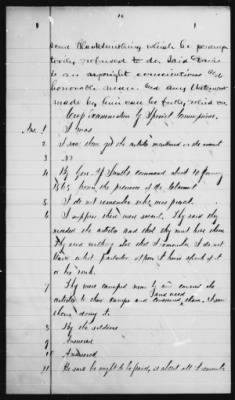 some Blacksmithing which he
refused to do. Said Davis
is an upright conscientious and
honorable man and any statement
made by him can be fully relied on
Cross examination by Special Commissioner.
Ans. 1 I was
2 I saw them get the articles mentioned in the
3 No
4 By Gen. Smith's command about 10 January
1865 from the premises of the Claimant
5 I do not remember who was present.
6 I suppose there were some. They said they
needed the articles and that they must have them
They said nothing else that I remember. I do not
know what particular officers I have spoken of
or his rank.
7 They was camped near by and carried the
articles to their camps and used them, I saw
them doing it.
8 By the soldiers
9 Answered
10 Answered
11 He said he ought to be paid, is about all I remember